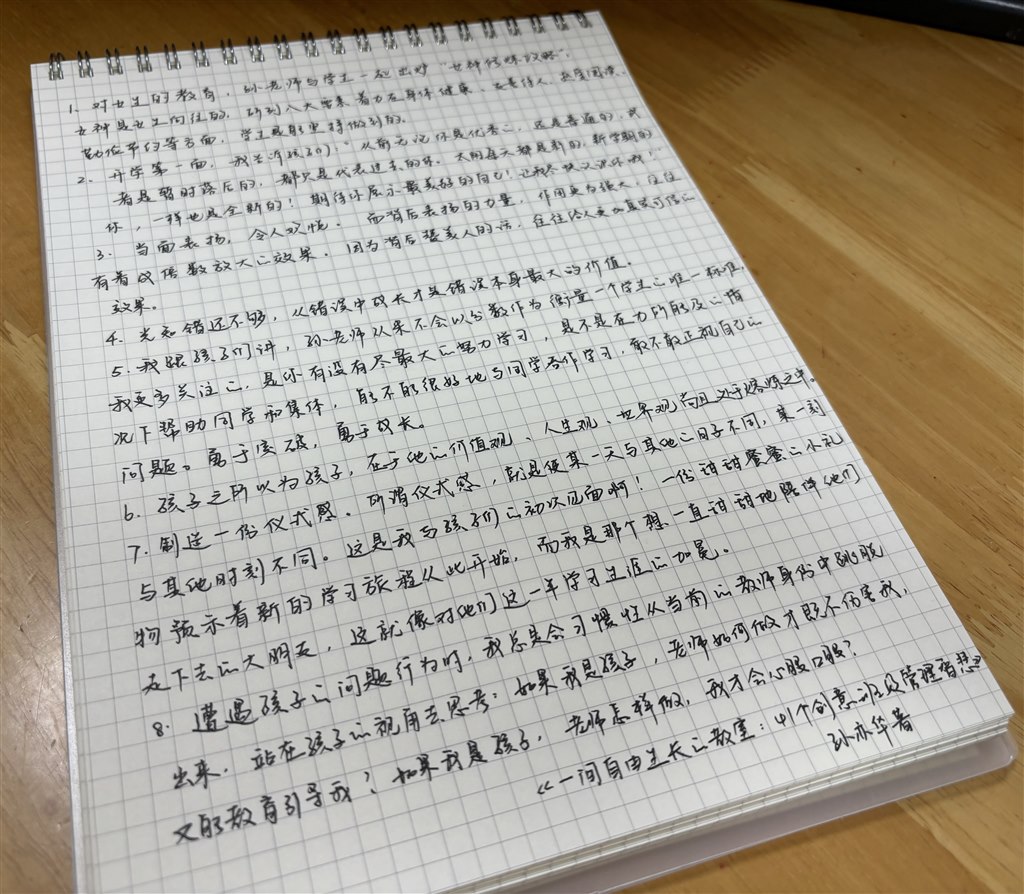 1. 对女生的教育，孙老师与学生一起出炉"女神修炼攻略"，
女神是女生向往的，研究八大要素着力在身体健康、友善待人、
勤俭节约等方面，学生最能坚持做到的。
2. 开学第一面，我告诉孩子们："从前无论你是优秀的，还是普通的，或
者是暂时落后的，都只是代表过去的你。太阳每天都是新的，新学期的
你，一样也是全新的！期待你展示最美好的自己！让我尽快认识你哦！
3. 当面表扬，令人欢悦。而背后表扬的力量，作用更为强大，往往
有着成倍数放大的效果。因为背后赞美人的话，往往给人更加真实可信的
效果。
4. 光知错还不够，从错误中成长才是错误本身最大的价值。
5. 我跟孩子们讲，孙老师从来不会以分数作为衡量一个学生的唯一标准，
我更多关注的，是你有没有尽最大的努力学习，是不是在力所能及的情
况下帮助同学和集体，能不能很好地与同学合作学习，敢不敢正视自己的
问题。勇于突破，勇于成长。
6. 孩子之所以为孩子，在于他的价值观、人生观、世界观尚且处于熔炼之中。
7. 制造一份仪式感。所谓仪式感，就是使某一天与其他的日子不同，某一刻
与其他时刻不同。这是我与孩子们的初次见面啊！一份甜甜蜜蜜的小礼
物预示着新的学习旅程从此开始，而我是那个想一直甜甜地陪伴他们
走下去的大朋友，这就像对他们这一年学习生涯的加冕。
8. 遭遇孩子的问题行为时，我总是会习惯性从当前的教师身份中跳脱
出来，站在孩子的视角去思考：如果我是孩子，老师如何做才既不伤害我，
又能教育引导我？如果我是孩子，老师怎样做，我才会心服口服？
《一间自由生长的教室：41个创意班级管理智慧》
孙亦华著